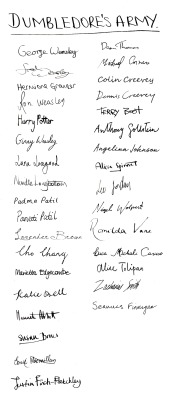 DUMBLEDORE'S ARMY
George Weasley
Fred Weasley
Hermione Granger
Ron Weasley
Harry Potter
Ginny Weasley
Luna Lovegood
Neville Longbottom
Padma Patil
Parvati Patil
Lavender Brown
Cho Chang
Marietta Edgecombe
Katie Bell
Hannah Abbott
Susan Bones
Ernie Macmillan
Justin Finch-Fletchley
Dean Thomas
Michael Corner
Colin Creevey
Dennis Creevey
TERRY Boot
Anthony Goldstein
Angelina Johnson
Alicia Spinnet
Lee Jordan
Nigel Wolpert
Romilda Vane
Alice Tolipan
Zacharias Smith
Seamus Finnigan